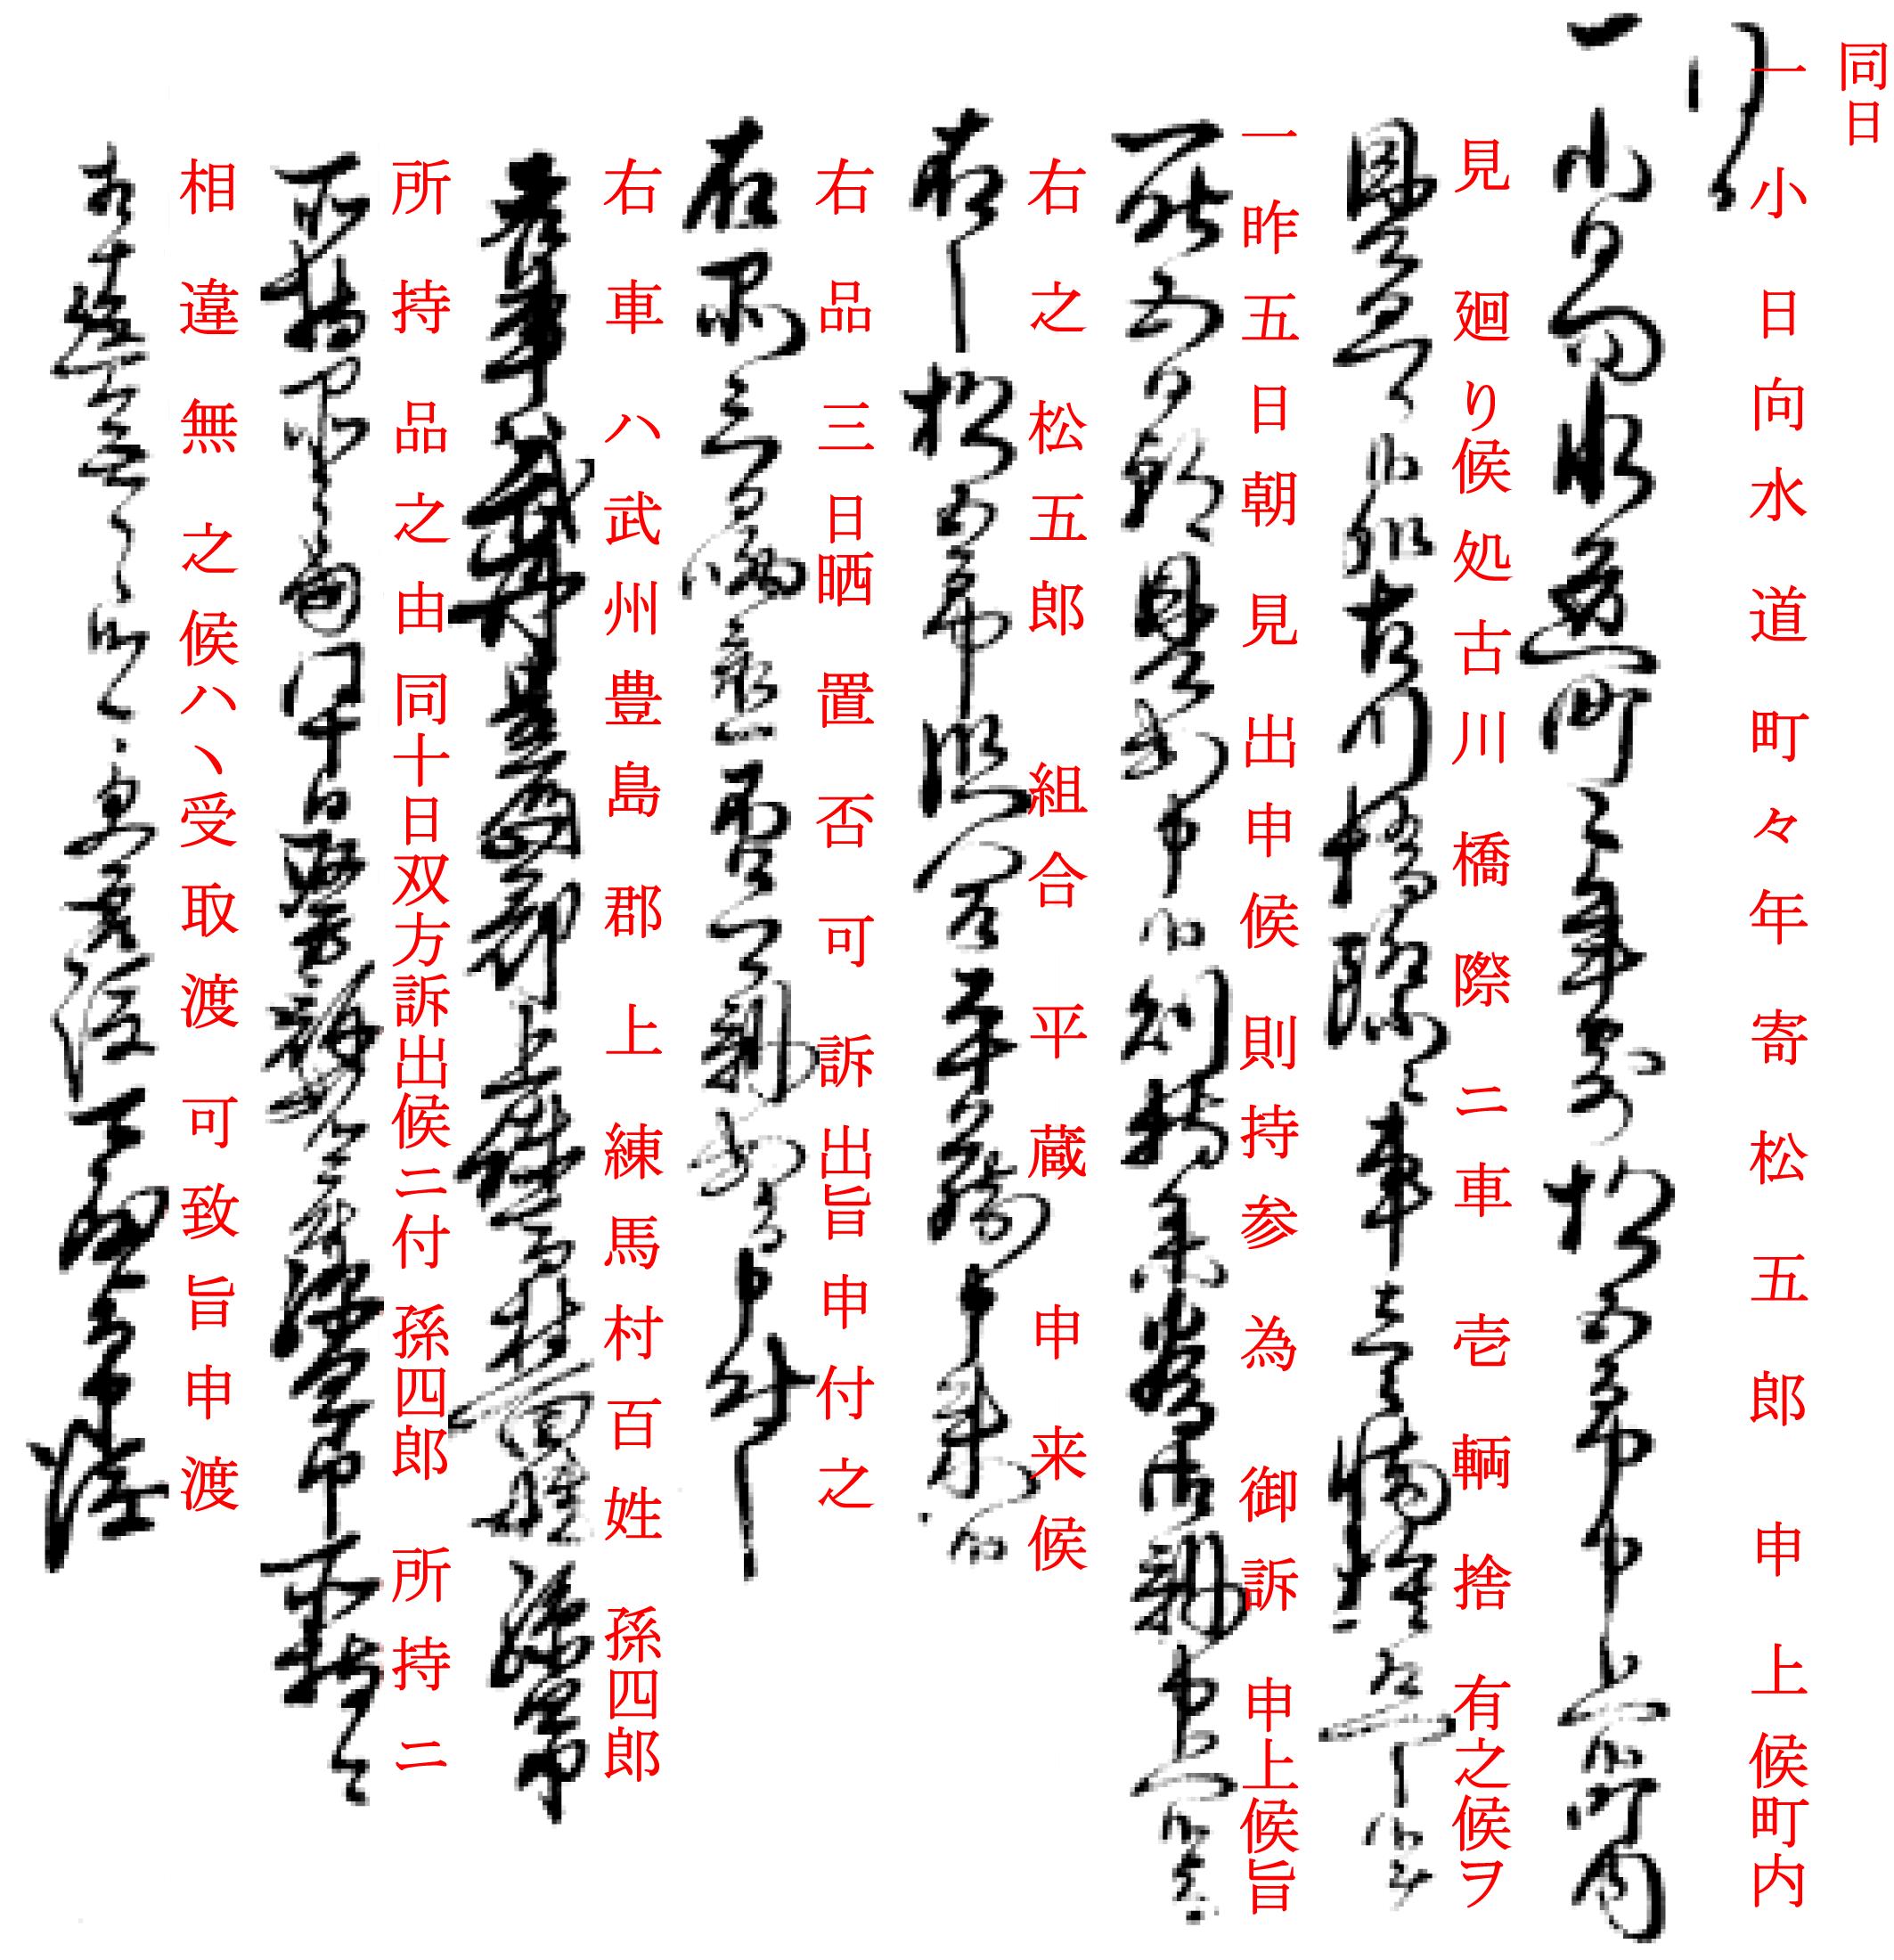 同日
一小日向水道町々年寄松五郎申上候町内
見廻り候処古川橋際ニ車壱輌捨有之候ヲ
一昨五日朝見出申候則持参為御訴申上候旨
右之松五郎組合平蔵申来候
右品三日晒置否可訴出旨申付之
右車ハ武州豊島郡上練馬村百姓孫四郎
所持品之由同十日双方訴出候ニ付孫四郎所持ニ
相違無之候ハヽ受取渡可致旨申渡